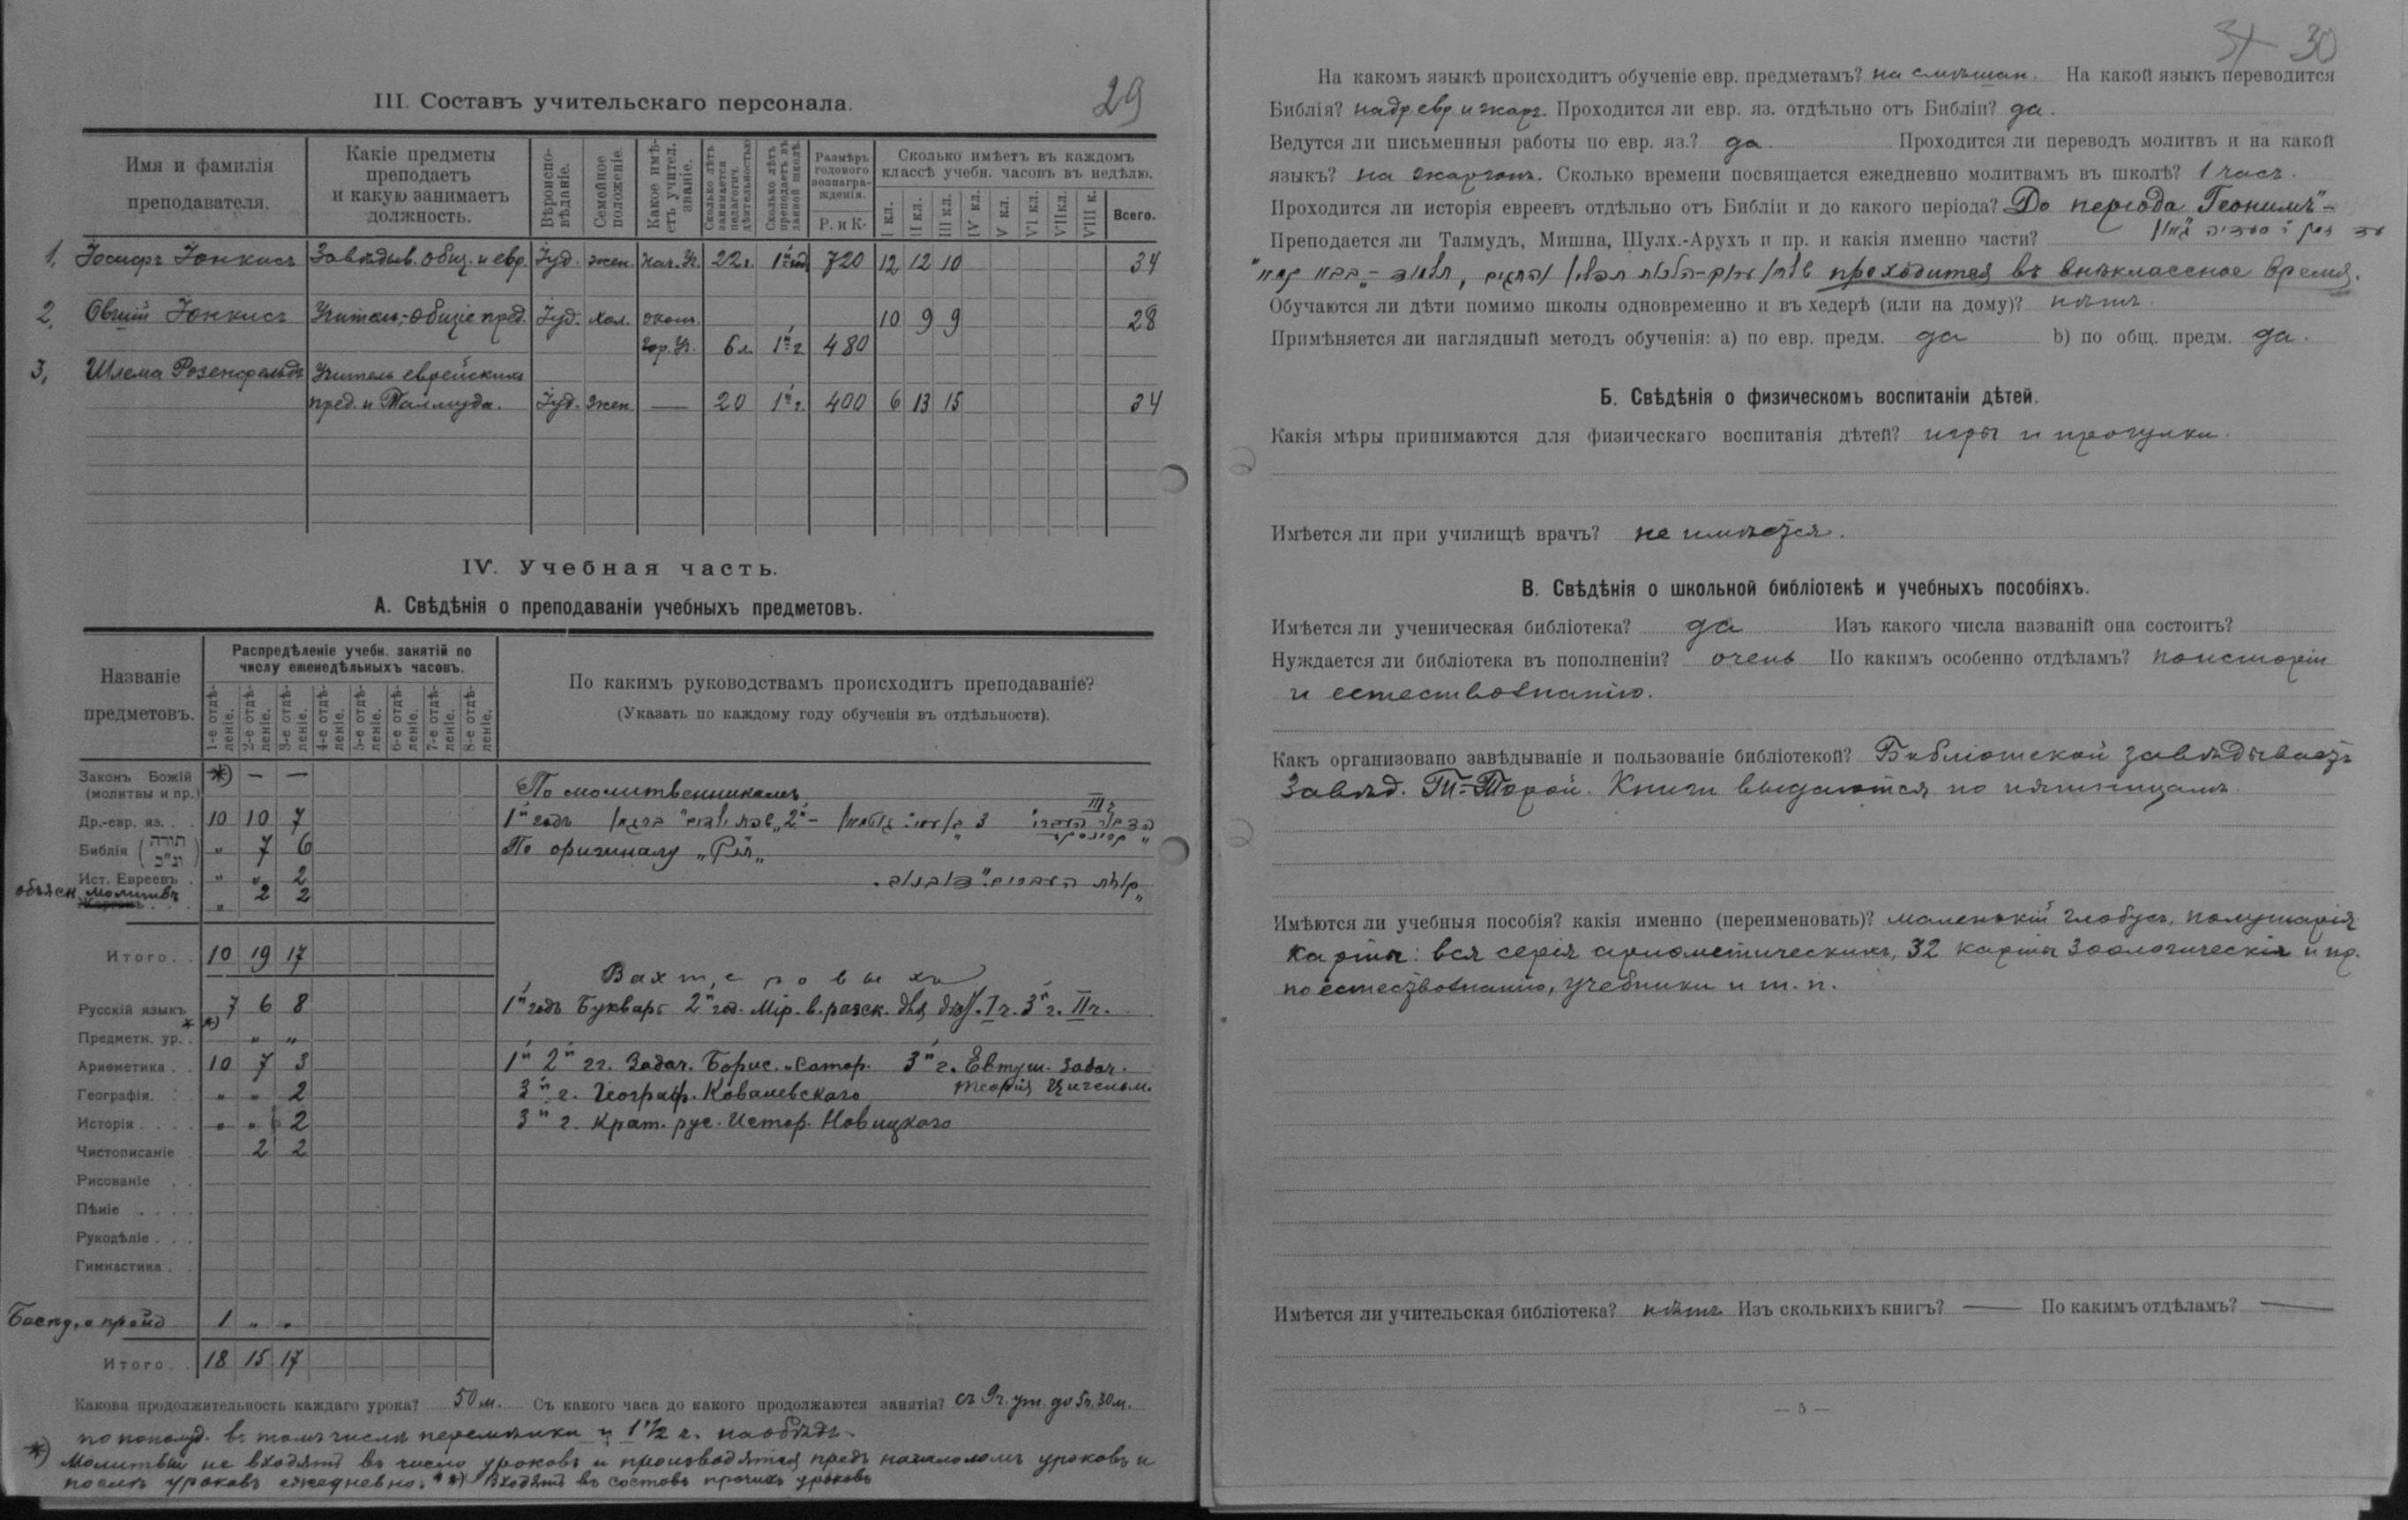 29
III. Составъ учительскаго персонала.
Имя и фамилія преподавателя.
Какіе предметы преподаетъ и какую занимаетъ должность.
Вѣроиспо-вѣданіе.
Семейное положеніе.
Какое имѣ-етъ учител. званіе.
Сколько лѣтъ занимается педагогич. дѣятельностью
Сколько лѣтъ преподаетъ въ данной школѣ.
Размѣръ годового вознагра-жденія.
Р. и К.
Сколько имѣетъ въ каждомъ классѣ учебн. часовъ въ недѣлю.
I кл. II кл. III кл. IV кл. V кл. VI кл. VII кл. VIII к. Всего.
1. Іосифъ Іонкисъ Завѣдыв. общ. и евр. Іуд. жен. Нач. Уч. 22 г. 1й годъ 720 12 12 10 34
2. Овшій Іонкисъ Учитель, общіе пред. Іуд. хол. оконч. 10 9 9 28
Гор. Уч. 6 л. 1й г. 480
3. Шлема Розенфельдъ Учитель еврейскихъ
пред. и Талмуда. Іуд. жен. — 20 1й г. 400 6 13 15 34
IV. Учебная часть.
А. Свѣдѣнія о преподаваніи учебныхъ предметовъ.
Названіе предметовъ.
Распредѣленіе учебн. занятій по числу еженедѣльныхъ часовъ.
1-е отдѣ-леніе. 2-е отдѣ-леніе. 3-е отдѣ-леніе. 4-е отдѣ-леніе. 5-е отдѣ-леніе. 6-е отдѣ-леніе. 7-е отдѣ-леніе. 8-е отдѣ-леніе.
По какимъ руководствамъ происходитъ преподаваніе?
(Указать по каждому году обученія въ отдѣльности).
Законъ Божій (молитвы и пр.) *) — — По молитвенникамъ
Др.-евр. яз. . . 10 10 7 1й годъ
Библія (תורה תנ"ך) „ 7 6 По оригиналу
Ист. Евреевъ . „ „ 2
объясн. молитвъ „ 2 2
Итого. . 10 19 17
Вахтеровыхъ
Русскій языкъ 7 6 8 1й годъ Букварь 2й год. Мір. в. разск. для дѣт. I ч. 3й г. II ч.
Предметн. ур. . **) „ „
Ариѳметика . . 10 7 3 1й 2й гг. Задач. Борис. и Сатар. 3й г. Евтуш. Задач.
Географія. . „ „ 2 3й г. Географ. Ковалевскаго
Исторія . . . . „ „ 2 3й г. Крат. рус. Истор. Новицкаго
Чистописаніе . 2 2
Рисованіе . .
Пѣніе . . . .
Рукодѣліе . . .
Гимнастика . .
1 „ „
Итого. . 18 15 17
Какова продолжительность каждаго урока? 50 м. Съ какого часа до какого продолжаются занятія? съ 9 ч. ут. до 5 ч. 30 м.
по полуд. въ томъ числѣ перемѣнки и 1½ ч. на обѣдъ.
*) Молитвы не входятъ въ число уроковъ и производятся предъ началомъ уроковъ и
послѣ уроковъ ежедневно. **) Входятъ въ составъ прочихъ уроковъ
30
На какомъ языкѣ происходитъ обученіе евр. предметамъ? на смѣшан. На какой языкъ переводится
Библія? на др. евр. и жарг. Проходится ли евр. яз. отдѣльно отъ Библіи? да.
Ведутся ли письменныя работы по евр. яз.? да. Проходится ли переводъ молитвъ и на какой
языкъ? на жаргонъ. Сколько времени посвящается ежедневно молитвамъ въ школѣ? 1 часъ.
Проходится ли исторія евреевъ отдѣльно отъ Библіи и до какого періода? До періода Геонимъ —
Преподается ли Талмудъ, Мишна, Шулх.-Арухъ и пр. и какія именно части?
проходится въ внѣклассное время.
Обучаются ли дѣти помимо школы одновременно и въ хедерѣ (или на дому)? нѣтъ.
Примѣняется ли наглядный методъ обученія: а) по евр. предм. да b) по общ. предм. да.
Б. Свѣдѣнія о физическомъ воспитаніи дѣтей.
Какія мѣры принимаются для физическаго воспитанія дѣтей? игры и прогулки.
Имѣется ли при училищѣ врачъ? не имѣется.
В. Свѣдѣнія о школьной библіотекѣ и учебныхъ пособіяхъ.
Имѣется ли ученическая библіотека? да Изъ какого числа названій она состоитъ?
Нуждается ли библіотека въ пополненіи? очень По какимъ особенно отдѣламъ? по исторіи
и естествознанію.
Какъ организовано завѣдываніе и пользованіе библіотекой? Библіотекой завѣдываетъ
Завѣд. Т.-Торой. Книги выдаются по пятницамъ.
Имѣются ли учебныя пособія? какія именно (переименовать)? маленькій глобусъ, полушарія
карты: вся серія ариѳметическихъ, 32 карты зоологическія и пр.
по естествознанію, учебники и т. п.
Имѣется ли учительская библіотека? нѣтъ Изъ сколькихъ книгъ? — По какимъ отдѣламъ? —
— 5 —